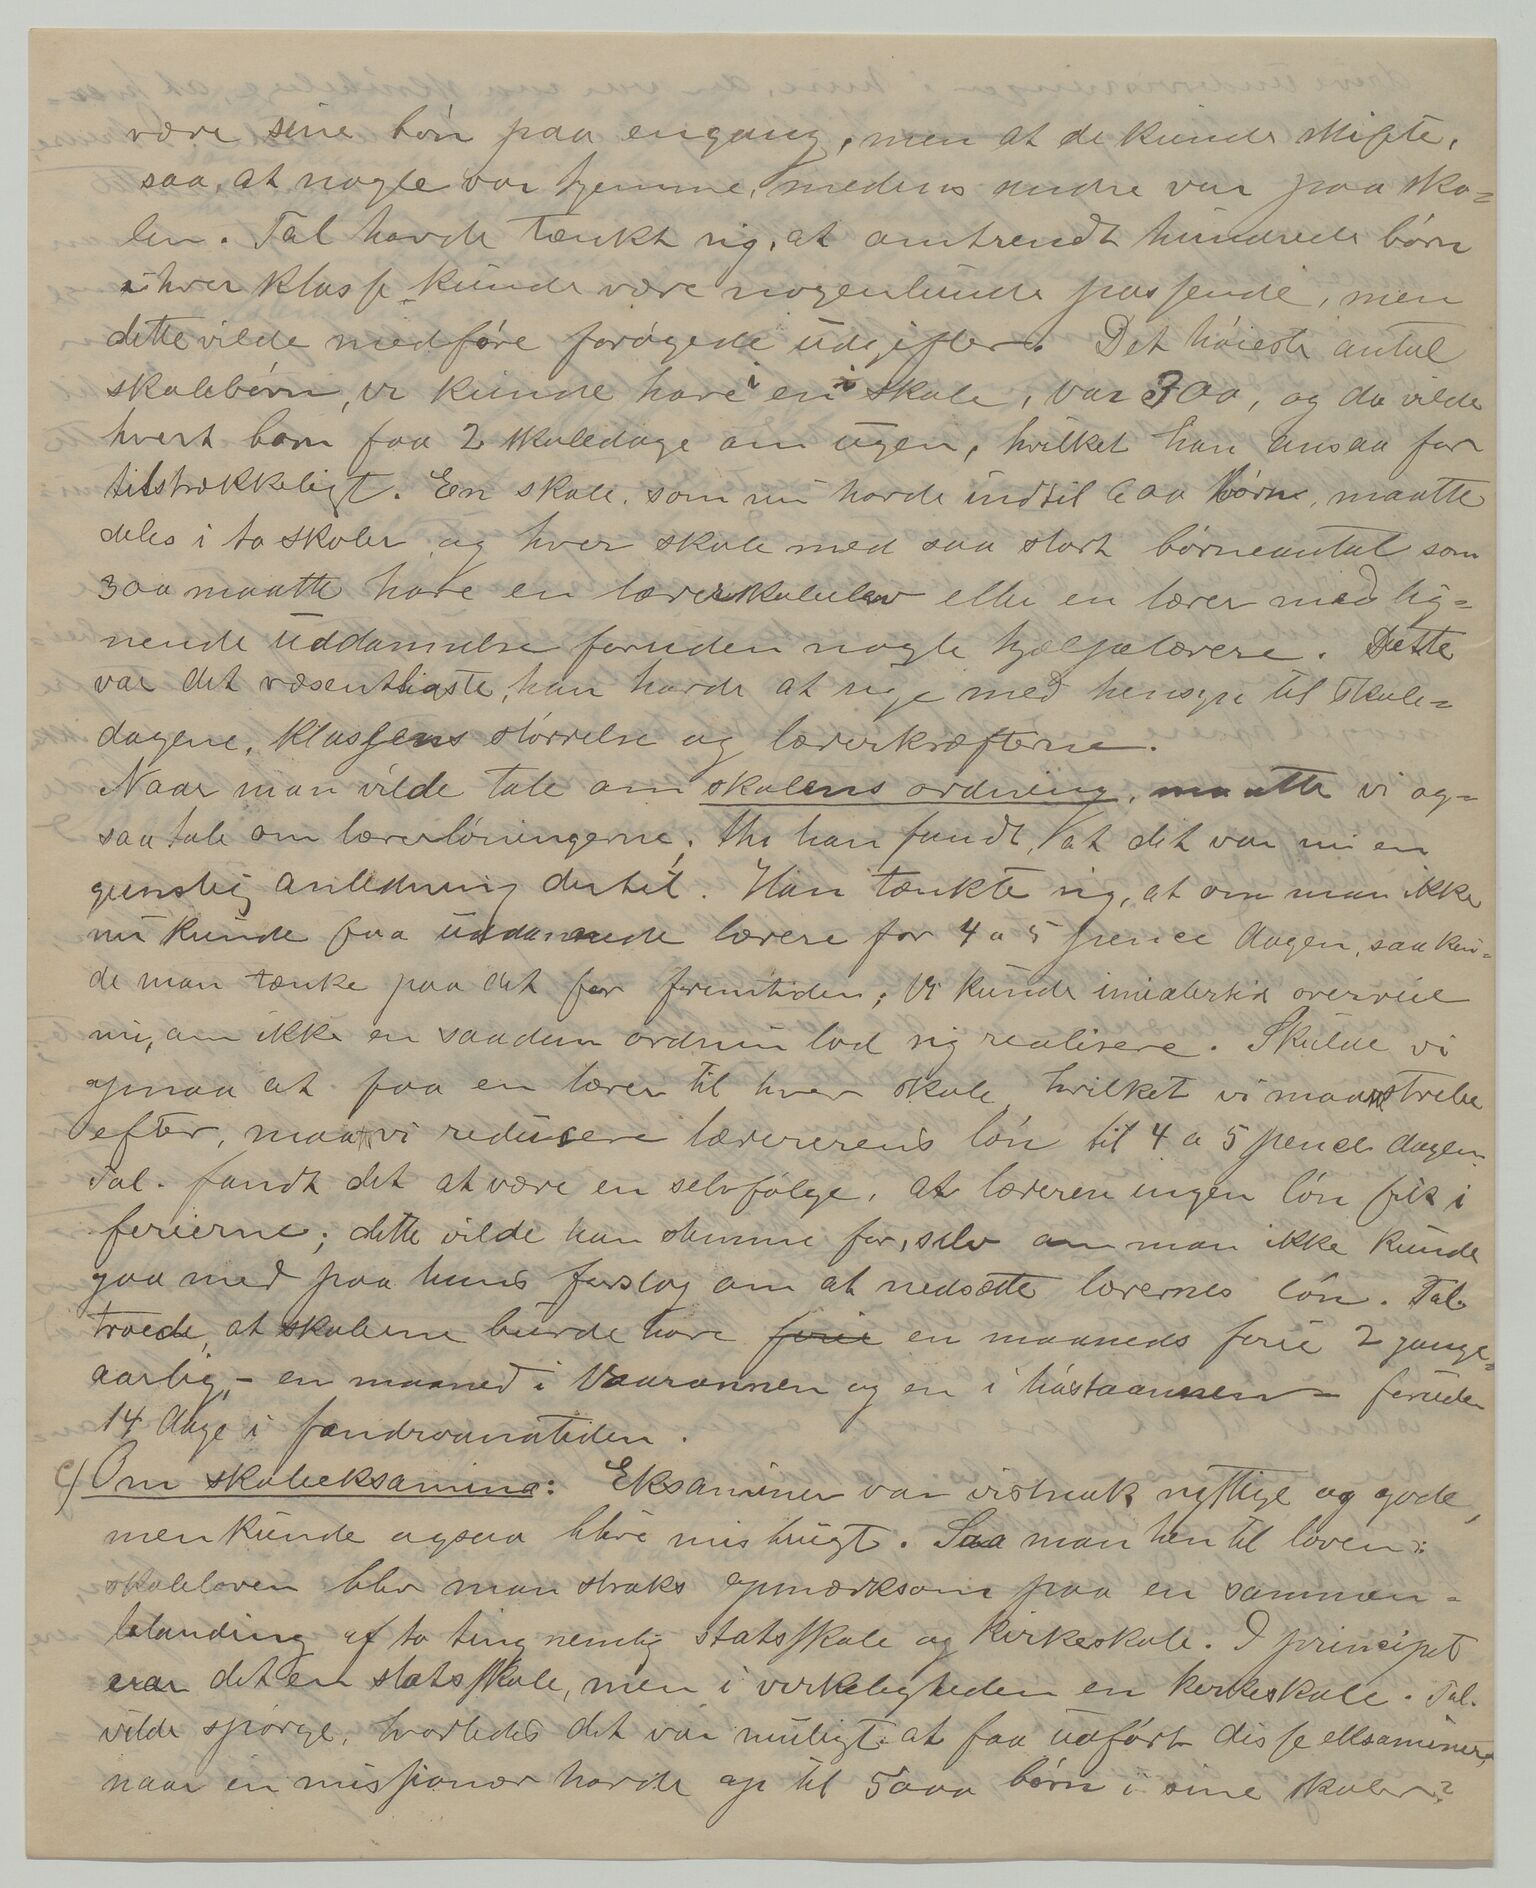 være sine børn paa engang, men at de kunde skifte,
saa, at nogle var hjemme, medens andre var paa sko-
len. Tal havde tænkt sig, at omtrendt hundrede børn
i hver klasse kunde være nogenlunde passende, men
dette vilde medføre forøgede udgifter. Det høieste antal
skolebørn, vi kunde have i en skole, var 300, og da vilde
hvert barn faa 2 skoledage om ugen, hvilket han ansaa for
tilstrækkeligt. En skole, som nu havde indtil 600 børn, maatte
deles i to skoler og hver skole med saa stort børneantal som
300 maatte have en lærerskoleelev eller en lærer med lig-
nende uddannelse foruden nogle hjælpelærere. Dette
var det væsentligste, han havde at sige med hensyn til skole-
dagene, klassens størrelse og lærerkræfterne.
Naar man vilde tale om skolens ordning, maatte vi og-
saa tale om lærerlønningerne, thi han fandt, at det var nu en
gunstig anledning dertil. Han tænkte sig, at om man ikke
nu kunde faa uddannede lærere for 4 a 5 pence dagen, saa kun-
de man tænke paa det for fremtiden; Vi kunde imidlertid overveie
nu, om ikke en saadan ordnin lod sig realisere. Skulde vi
opnaa at faa en lærer til hver skole hvilket vi maa strebe
efter, maa vi redusere lærererens løn til 4 a 5 pence dagen.
Tal. fandt det at være en selvfølge, at læreren ingen løn fik i
ferierne; dette vilde han stemme for, selv om man ikke kunde
gaa med paa hans forslag om at nedsætte lærernes løn. Tal.
troede, at skolerne burde have ferie en maaneds ferie 2 gange
aarlig, - en maaned i Vaaronnen og en i høstaannen - foruden
14 dage i fandroanatiden.
c) Om skoleeksamina: Eksaminer var vistnok nyttige og gode,
men kunde ogsaa blive misbrugt. Saa man hen til loven:
skoleloven blev man straks opmærksom paa en sammen-
blanding af to ting nemlig statsskole og kirkeskole. I principet
var det en statsskole, men i virkeligheden en kirkeskole. Tal.
vilde spørge, hvorledes det var muligt at faa udført disse eksaminer,
naar en missionær havde op til 5000 børn i sine skoler?